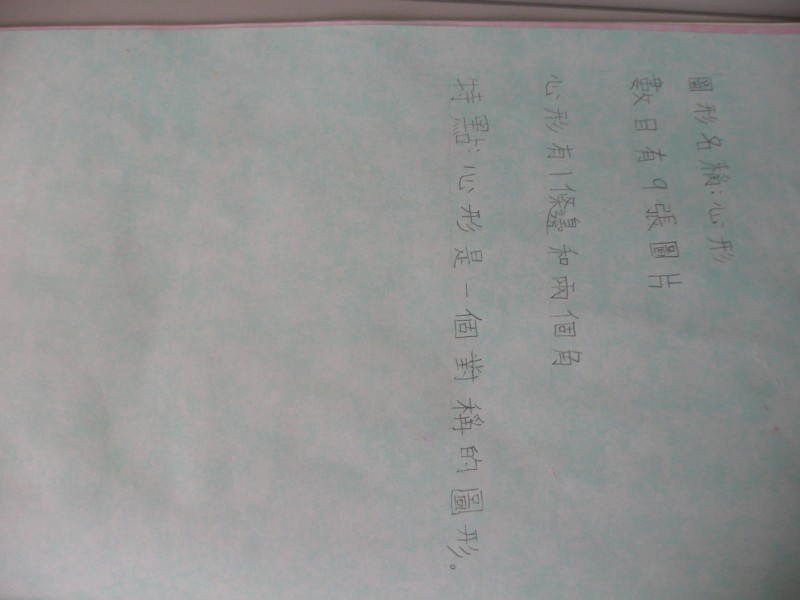 圖形名稱:心形
數目有9張圖片
心形有1條邊和兩個角
特點:心形是一個對稱的圖形。